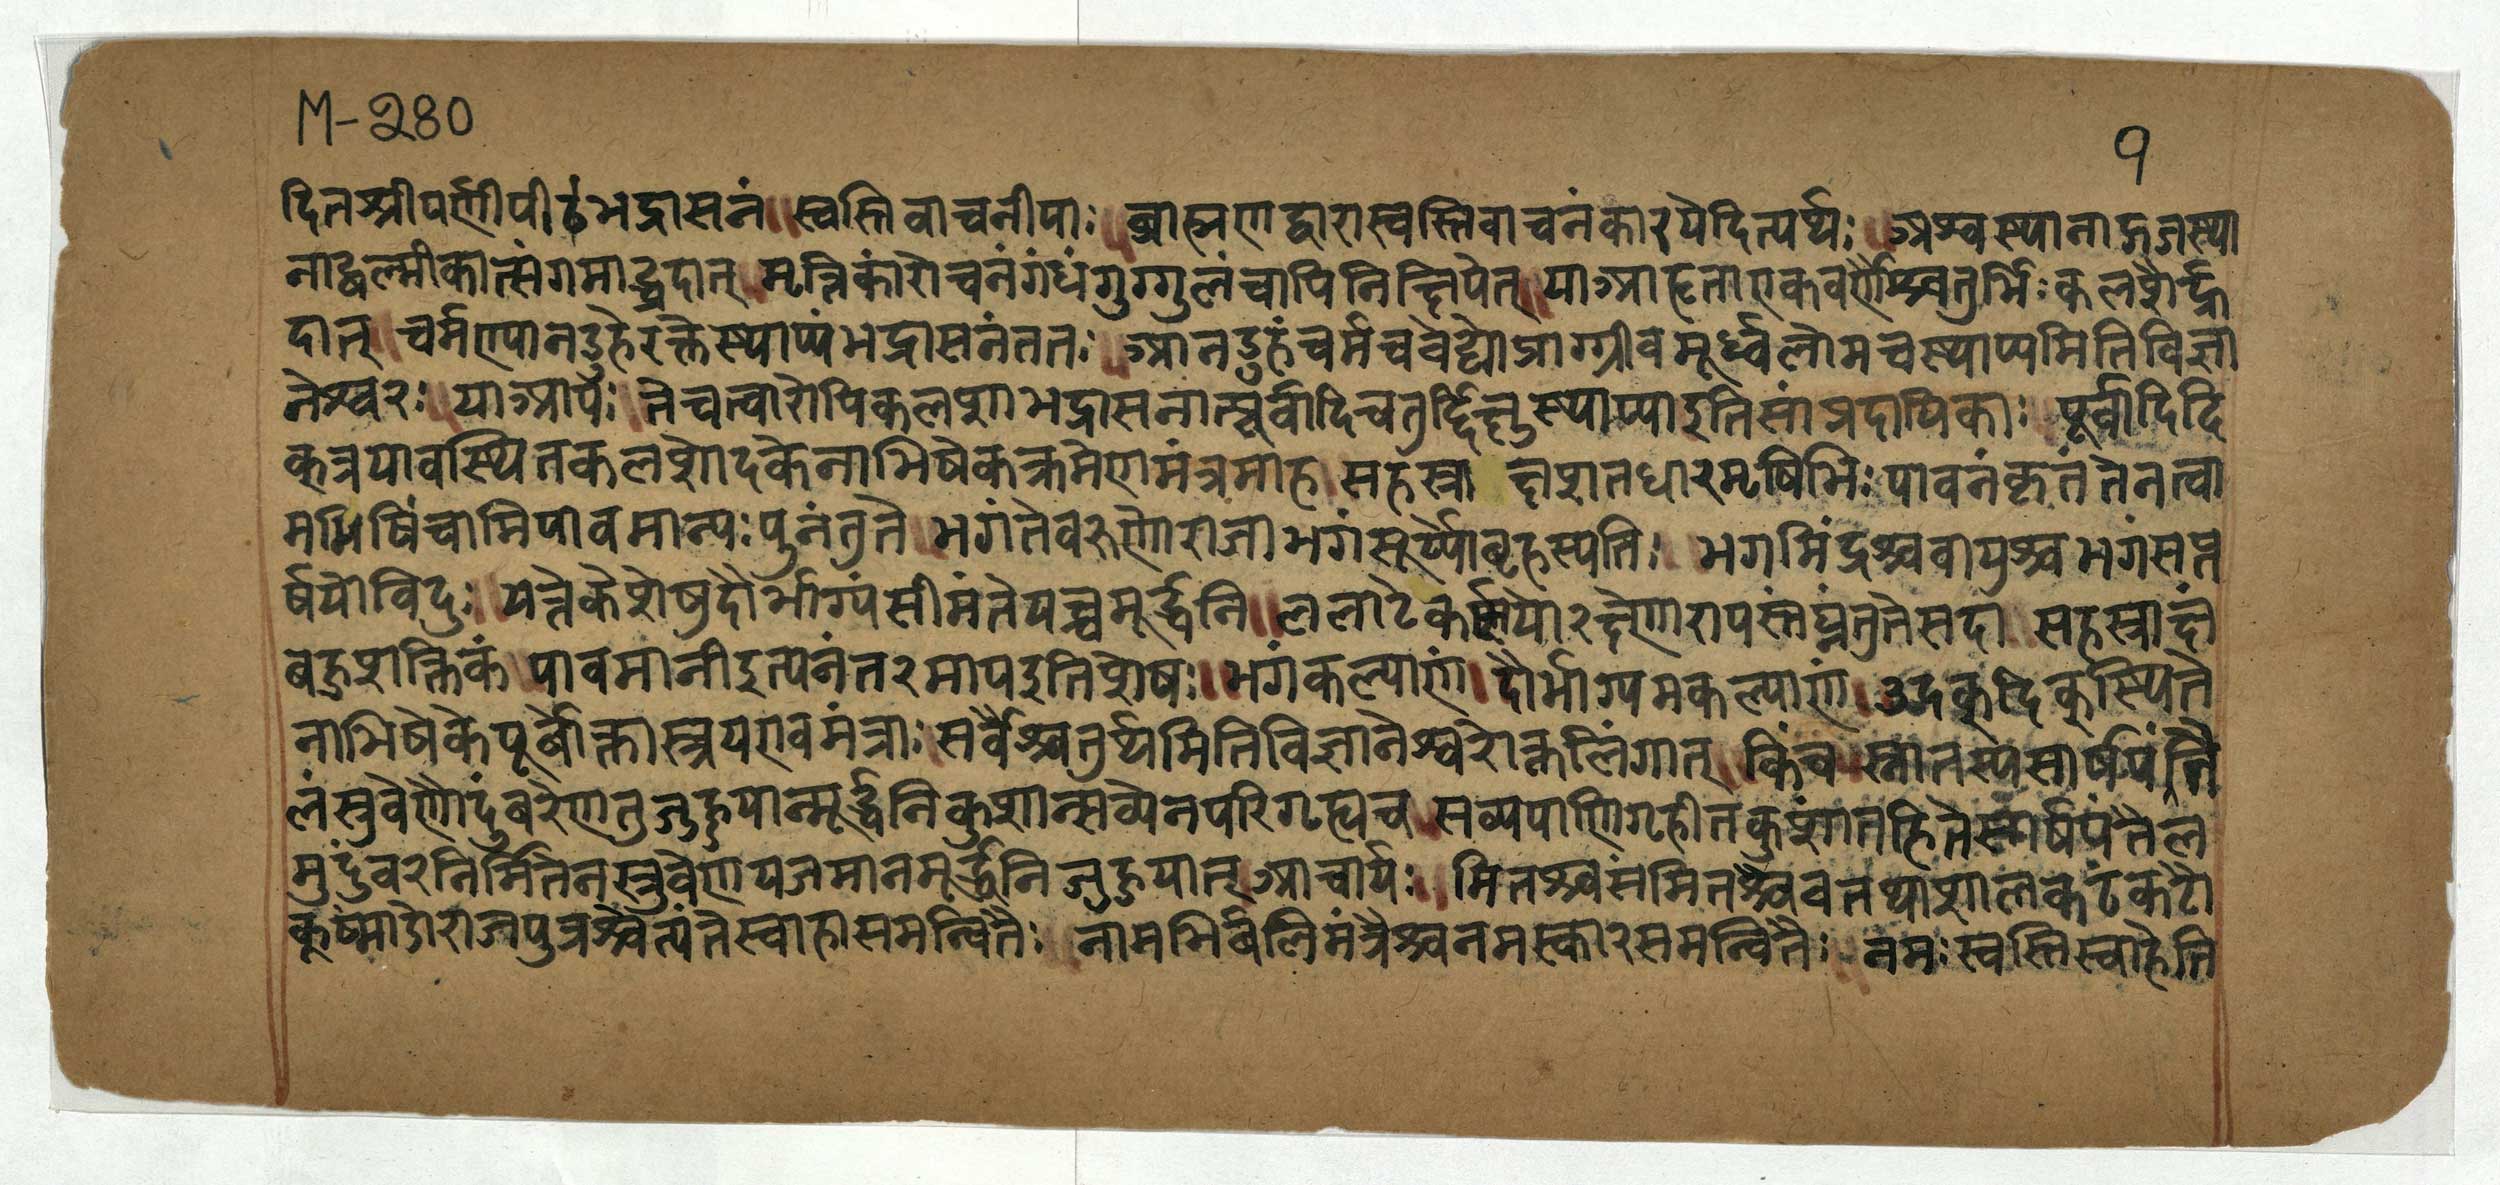 M-280
१
दितश्रीपर्णीपीठंभद्रासनं ॥ स्वस्तिवाचनीयाः ॥ ब्राह्मणद्वारास्वस्तिवाचनंकारयेदित्यर्थः ॥ अश्वस्थानाद्गजस्था
नाद्वल्मीकात्संगमाद्ध्रदात् ॥ मृत्तिकांरोचनंगंधंगुग्गुलंचापिनिक्षिपेत् ॥ याआहृताएकवर्णैश्चतुर्भिः कलशैर्ह्र
दात् ॥ चर्मण्यानडुहेरक्तेस्थाप्यंभद्रासनंततः ॥ आनडुहंचर्मचवेद्योप्राग्ग्रीवमूर्ध्वलोमचस्थाप्यमितिविज्ञा
नेश्वरः ॥ याआपः ॥ तेचत्वारोपिकलशाभद्रासनात्पूर्वादिचतुर्दिक्षुस्थाप्याइतिसांप्रदायिकाः ॥ पूर्वादिदि
क्त्रयावस्थितकलशोदकेनाभिषेकक्रमेणमंत्रमाह ॥ सहस्राक्षशतधारमृषिभिः पावनंकृतं तेनत्वा
मभिषिंचामिपावमान्यः पुनंतुते ॥ भगंतेवरुणोराजाभगंसूर्य्योबृहस्पतिः ॥ भगमिंद्रश्चवायुश्चभगंसप्त
र्षयोविदुः ॥ यत्तेकेशेषुदौर्भाग्यंसीमंतेयच्चमूर्द्धनि ॥ ललाटेकर्णयोरक्ष्णोरापस्तंघ्नंतुतेसदा ॥ सहस्राक्षं
बहुशक्तिकं ॥ पावमानीइत्यनंतरमापइतिशेषः ॥ भगंकल्याणं ॥ दौर्भाग्यमकल्याणं ॥ उदक्दिक्स्थिते
नाभिषेकेपूर्वोक्तास्त्रयएवमंत्राः ॥ सर्वैश्चतुर्थमितिविज्ञानेश्वरोक्तलिंगात् ॥ किंच ॥ स्नातस्यसार्षपंतै
लंस्रुवेणौदुंबरेणतु जुहुयान्मूर्द्धनिकुशान्सव्येनपरिगृह्यच ॥ सव्यपाणिगृहीतकुशांतर्हितेसार्षपंतैल
मुदुंबरनिर्मितेनस्रुवेणयजमानमूर्द्धनिजुहुयात् ॥ आचार्यः ॥ मितश्चसंमितश्चैवतथाशालकटंकटौ
कूष्मांडोराजपुत्रश्चेत्यंतेस्वाहासमन्वितैः ॥ नामभिर्बलिमंत्रैश्चनमस्कारसमन्वितैः ॥ नमः स्वस्तिस्वाहेति